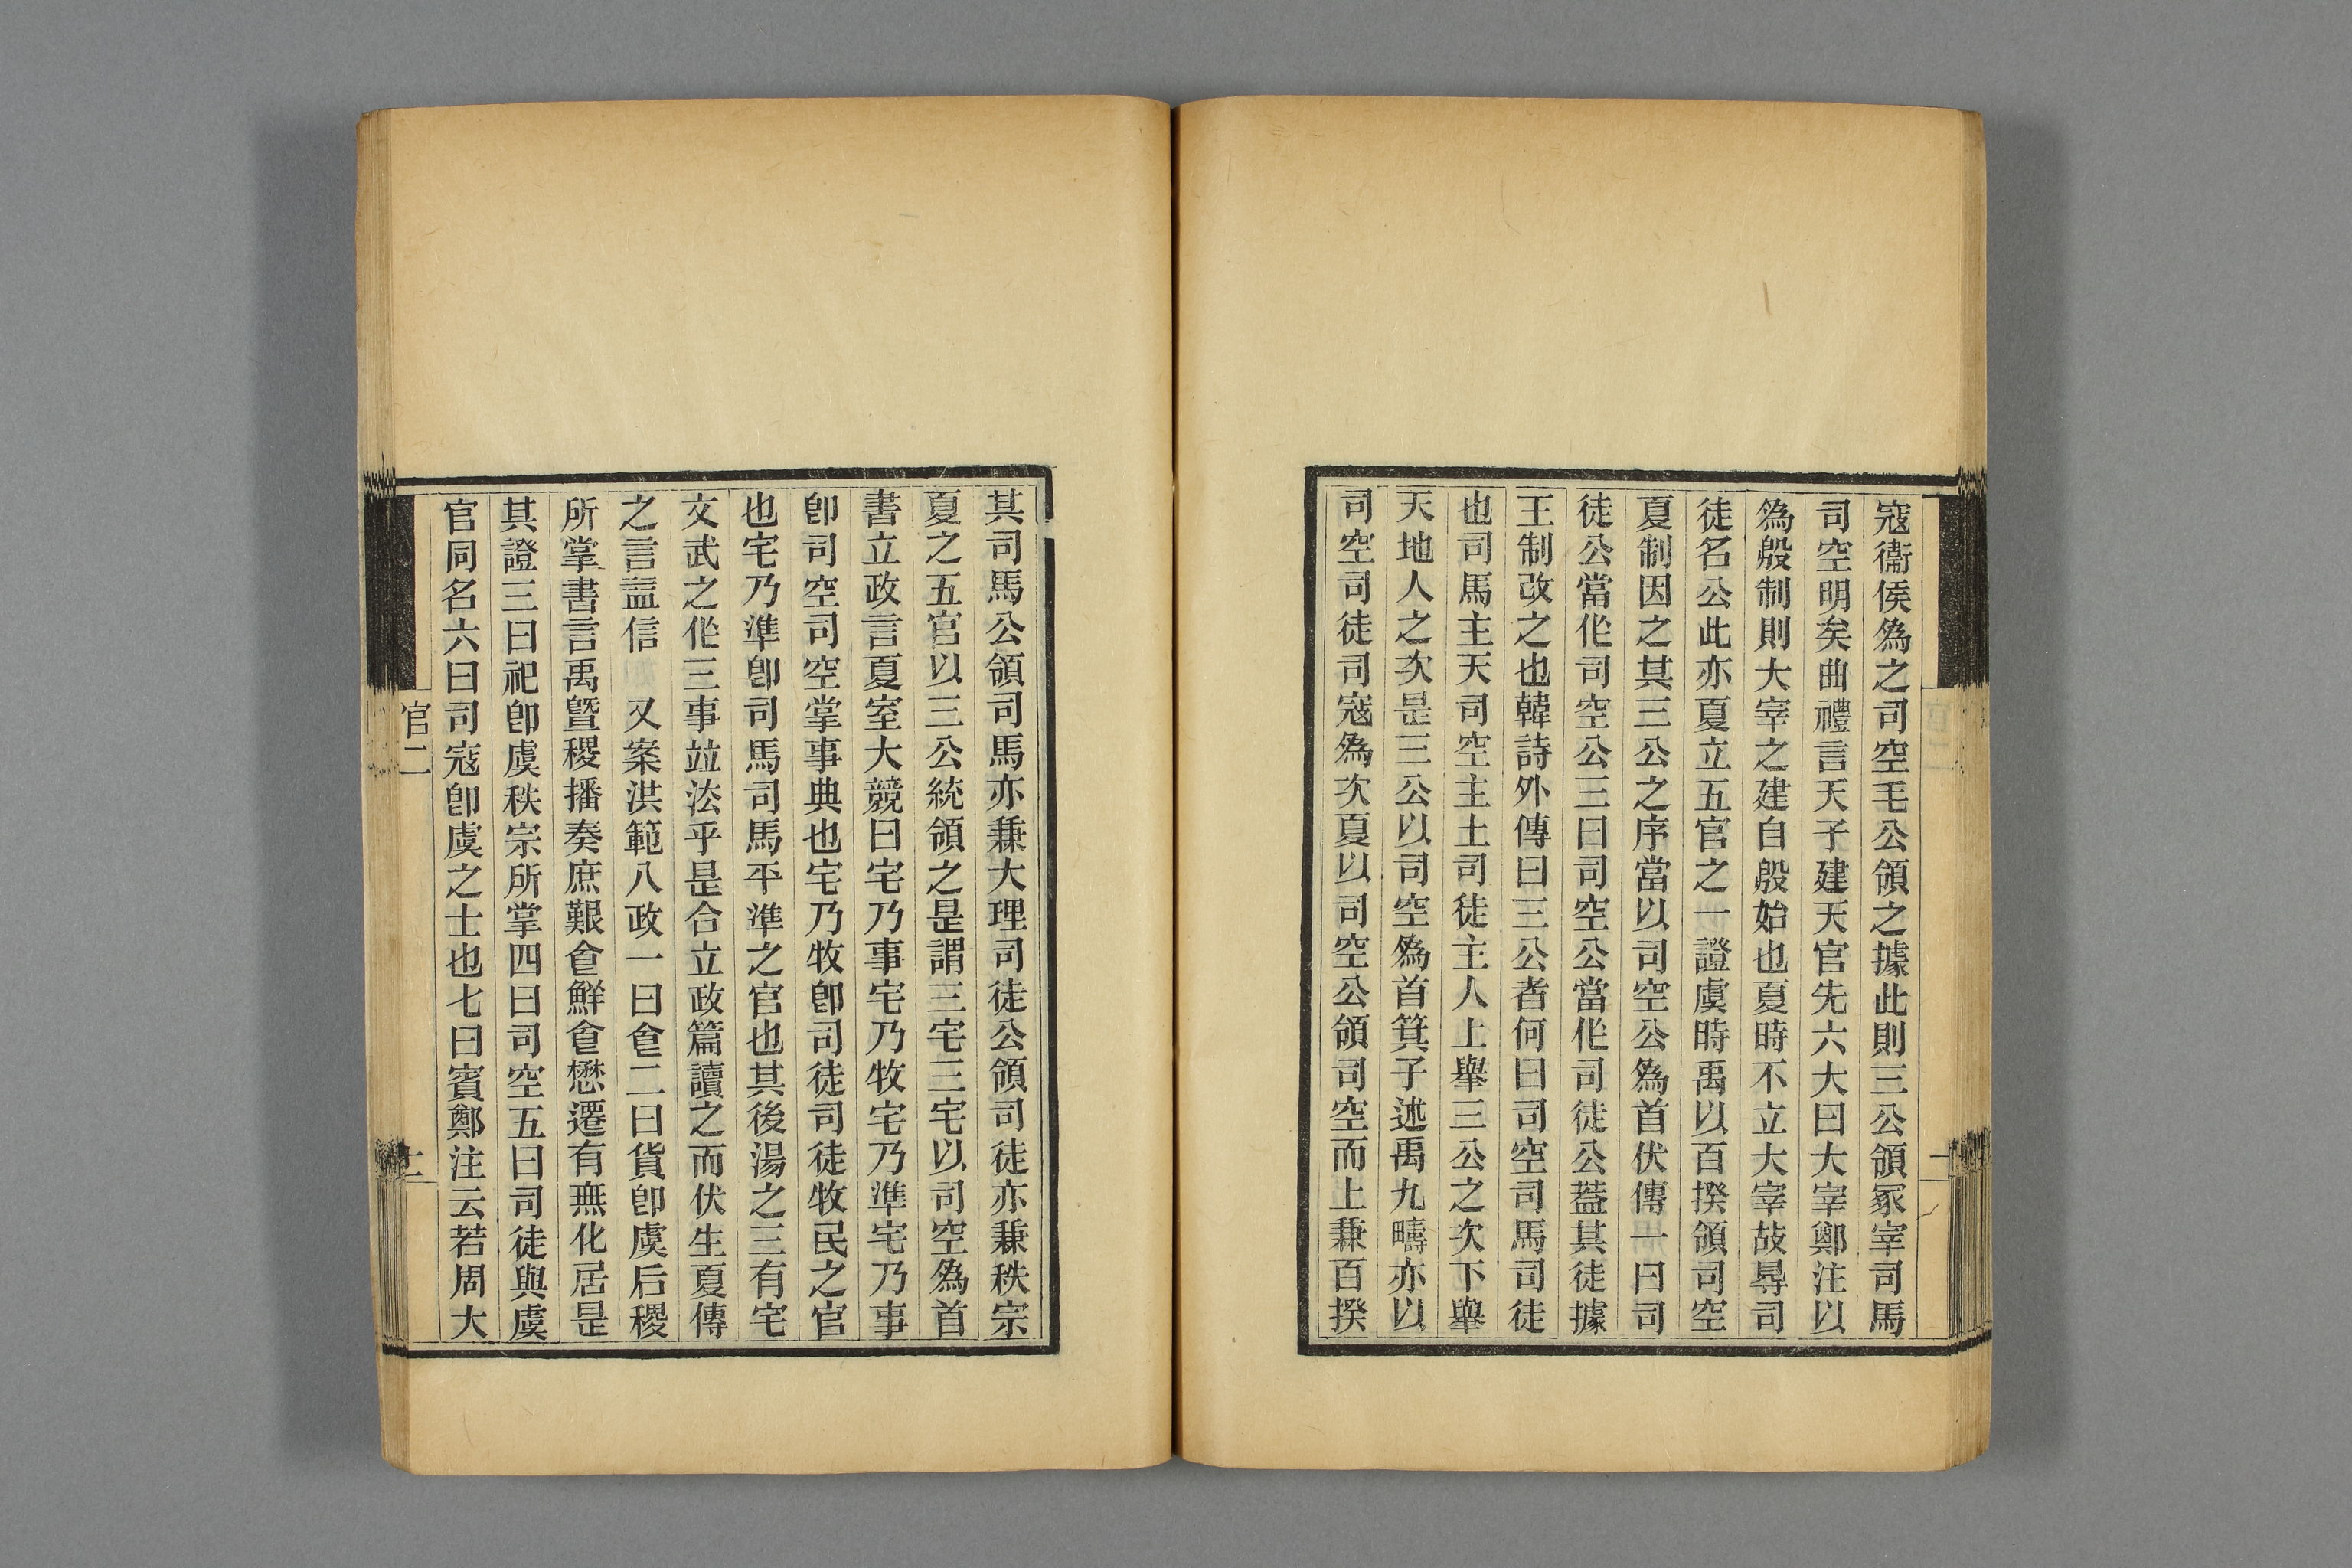 寇衞侯爲之司空毛公領之據此則三公領冢宰司馬
司空明矣曲禮言天子建天官先六大曰大宰鄭注以
爲殷制則大宰之建自殷始也夏時不立大宰故㝵司
徒名公此亦夏立五官之一證虞時禹以百揆領司空
夏制因之其三公之序當以司空公爲首伏傳一曰司
徒公當作司空公三曰司空公當作司徒公葢其徒據
王制改之也韓詩外傳曰三公者何曰司空司馬司徒
也司馬主天司空主土司徒主人上舉三公之次下舉
天地人之次是三公以司空爲首箕子述禹九疇亦以
司空司徒司寇爲次夏以司空公領司空而上兼百揆
其司馬公領司馬亦兼大理司徒公領司徒亦兼秩宗
夏之五官以三公統領之是謂三宅三宅以司空爲首
書立政言夏室大競曰宅乃事宅乃牧宅乃準宅乃事
卽司空司空掌事典也宅乃牧卽司徒司徒牧民之官
也宅乃準卽司馬司馬平準之官也其後湯之三有宅
文武之作三事竝法乎是合立政篇讀之而伏生夏傳
之言益信　又案洪範八政一曰食二曰貨卽虞后稷
所掌書言禹曁稷播奏庶艱食鮮食懋遷有無化居是
其證三曰祀卽虞秩宗所掌四曰司空五曰司徒與虞
官同名六曰司寇卽虞之士也七曰賓鄭注云若周大
官二
十二